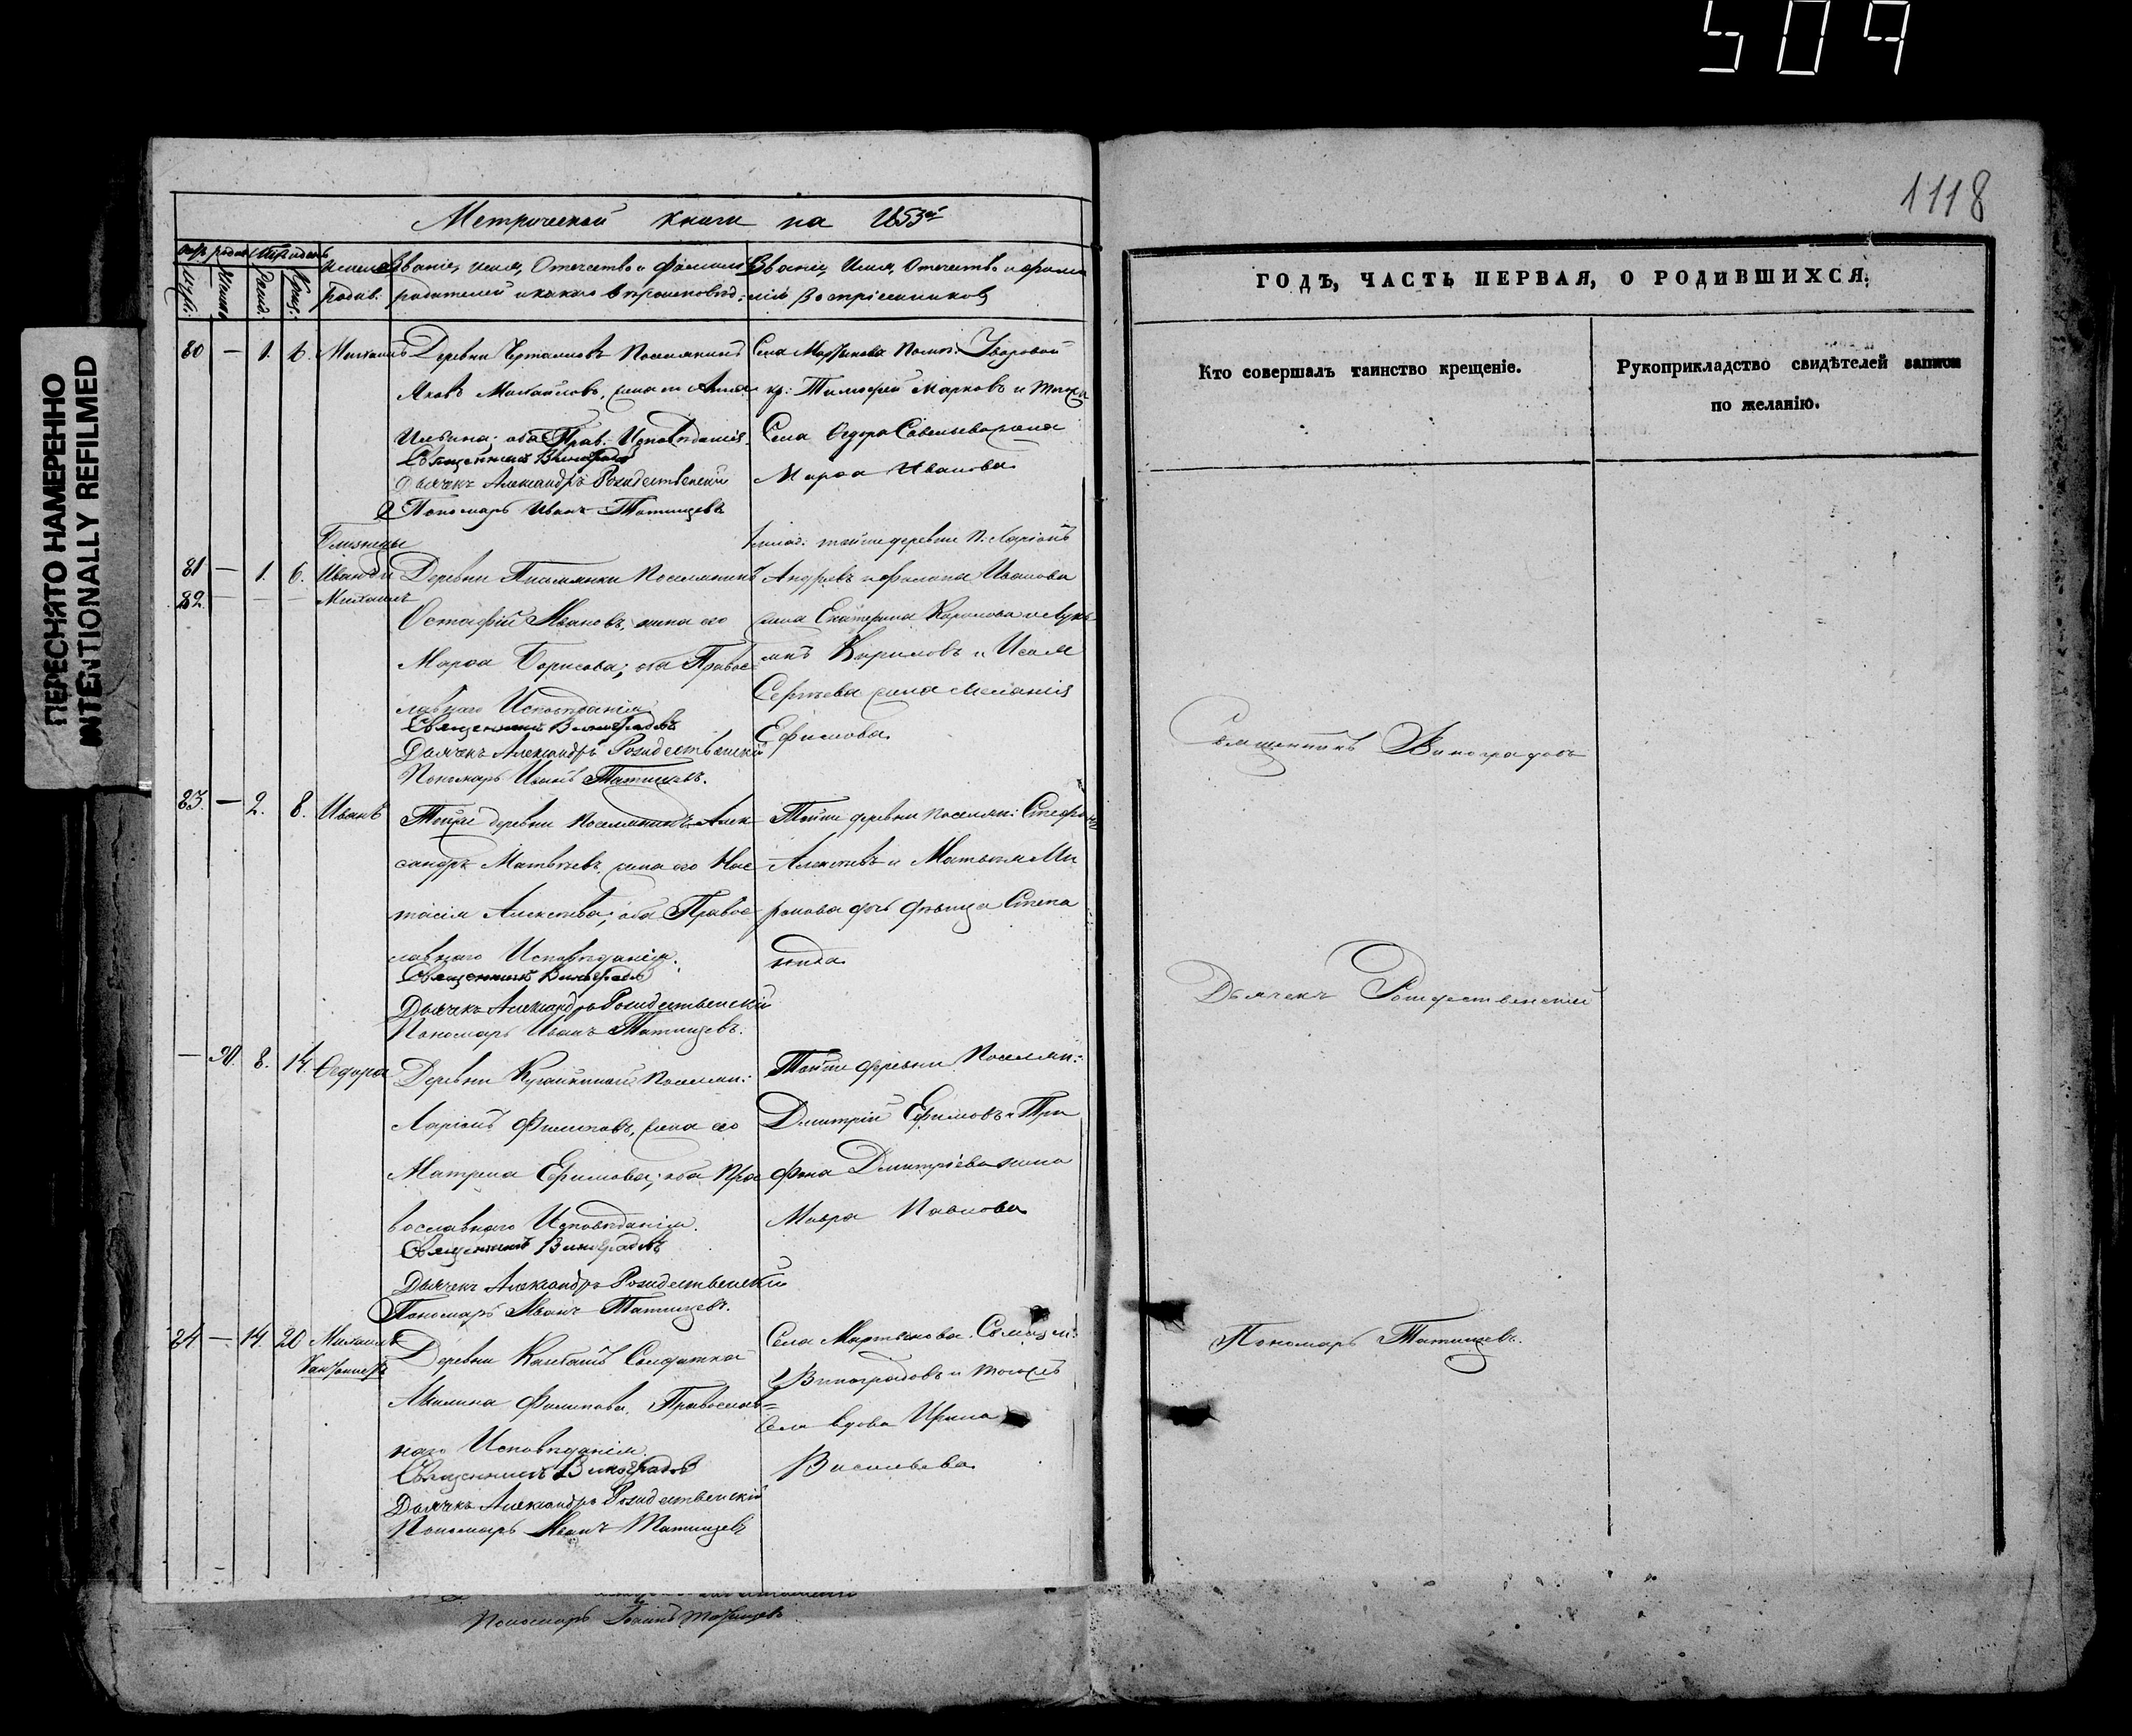 509
ПЕРЕСНЯТО НАМЕРЕННО
INTENTIONALLY REFILMED
1118
Метрической книги на 1853й
Звание, имя, Отечество и фамилія
родителей и какого вероисповед:
Званіе, Имя, Отечество и фами
лія Воспріемниковъ
80 — 1. 6. Михаилъ
Деревни Поселянинъ
Яковъ Михайловъ, жена его Анна
Ильина; оба Прав. Исповѣданія
Священникъ Виноградовъ
Дьячекъ Александръ Рождественскій
Пономарь Иванъ Татищевъ
Села Мартынова Помѣщ. Уваровой
кр: Тимофей Марковъ и того
Села Ѳедора Савельева жена
Марѳа Иванова
Близнецы
81 — 1. 6. Иванъ и
82. — — — Михаилъ
Деревни Поселянинъ
Остафій Ивановъ, жена его
Марѳа Борисова; оба Правос
лавнаго Исповѣданія
Священникъ Виноградовъ
Дьячекъ Александръ Рождественскій
Пономарь Иванъ Татищевъ.
тойже деревни П. Ларіонъ
Андреевъ и Иванова
жена Екатерина
Кириловъ и Исая
Сергѣева жена Меланія
Ефимова.
83. — 2. 8. Иванъ
Тойже деревни Поселянинъ Алек
сандръ Матвѣевъ, жена его Нас
тасія Алексѣева; оба Правос
лавнаго Исповѣданія.
Священникъ Виноградовъ
Дьячекъ Александръ Рождественскій
Пономарь Иванъ Татищевъ.
Тойже деревни Поселян: Стефанъ
Алексѣевъ и Матвея Ми
ронова дочь дѣвица Степа
нида.
— 90. 8. 14. Ѳедора
Деревни Поселян:
Ларіонъ Филиповъ, жена его
Матрена Ефимова; оба Пра
вославнаго Исповѣданія.
Священникъ Виноградовъ
Дьячекъ Александръ Рождественскій
Пономарь Иванъ Татищевъ.
Тойже деревни Поселян:
Дмитрій Ефимовъ и Три
фона Дмитріева жена
Мавра Павлова
84 — 14. 20 Михаилъ
Деревни Солдатка
Акилина Филипова, Православ=
наго Исповѣданія.
Священникъ Виноградовъ
Дьячекъ Александръ Рождественскій
Пономарь Иванъ Татищевъ
Села Мартынова Священ:
Виноградовъ и тогожъ
Села вдова Ирина
Васильева.
Пономарь Іоаннъ Татищевъ
ГОДЪ, ЧАСТЬ ПЕРВАЯ, О РОДИВШИХСЯ.
Кто совершалъ таинство крещеніе.
Рукоприкладство свидѣтелей записи
по желанію.
Священникъ Виноградовъ
Дьячекъ Рождественскій
Пономарь Татищевъ.